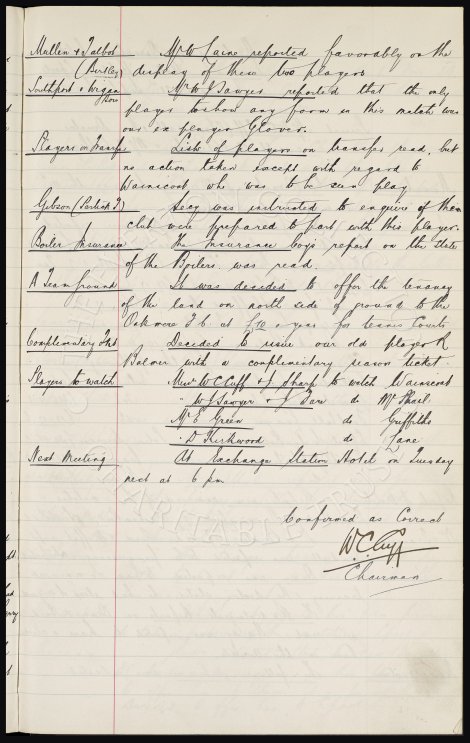 Mullen & Talbot Mr W Laine reported favorably on the
(Birtley) display of these two players
Southport v Wigan Boro Mr W J Sawyer reported that the only
player to show any form in this match was
our ex player Glover.
Players on Transfer Lists of players on transfer read, but
no action taken except with regard to
Wainscoat, who was to be seen play
Gibson (Partick T) Secy was instructed to enquire if the
club were prepared to part with this player.
Boiler Insurance The insurance coys report on the state
of the Boilers was read.
A Team ground It was decided to offer the tenancy
of the land on north side of ground to the
Oakmere T.C. at £10 a year for tennis courts
Complimentary Tkt Decided to issue our old player R
Balmer with a complimentary season ticket.
Players to watch Messrs W C Cuff & J Sharp to watch Wainscoat
" W J Sawyer & J do
Mr E Green do Griffiths
" D Kirkwood do Lane
Next Meeting At Exchange Station Hotel on Tuesday
next at 6 pm
Confirmed as Correct
W.C. Cuff
Chairman
CHARITABLE TRUST